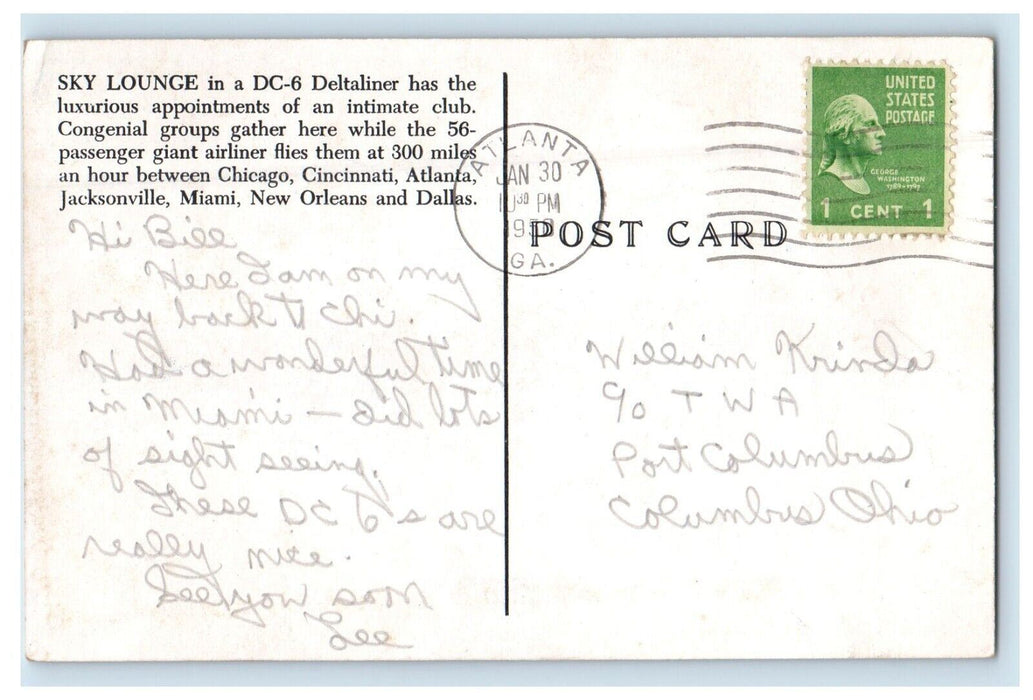 SKY LOUNGE in a DC-6 Deltaliner has the
luxurious appointments of an intimate club.
Congenial groups gather here while the 56-
passenger giant airliner flies them at 300 miles
an hour between Chicago, Cincinnati, Atlanta,
Jacksonville, Miami, New Orleans and Dallas.
Hi Bill
Here I am on my
way back to Chi.
Had a wonderful time
in Miami — did lots
of sight seeing.
These DC 6's are
really nice.
See you soon
Lee
ATLANTA
JAN 30
10 30 PM
GA.
POST CARD
UNITED
STATES
POSTAGE
GEORGE
WASHINGTON
1789-1797
1 CENT 1
William Krinda
c/o TWA
Port Columbus
Columbus Ohio